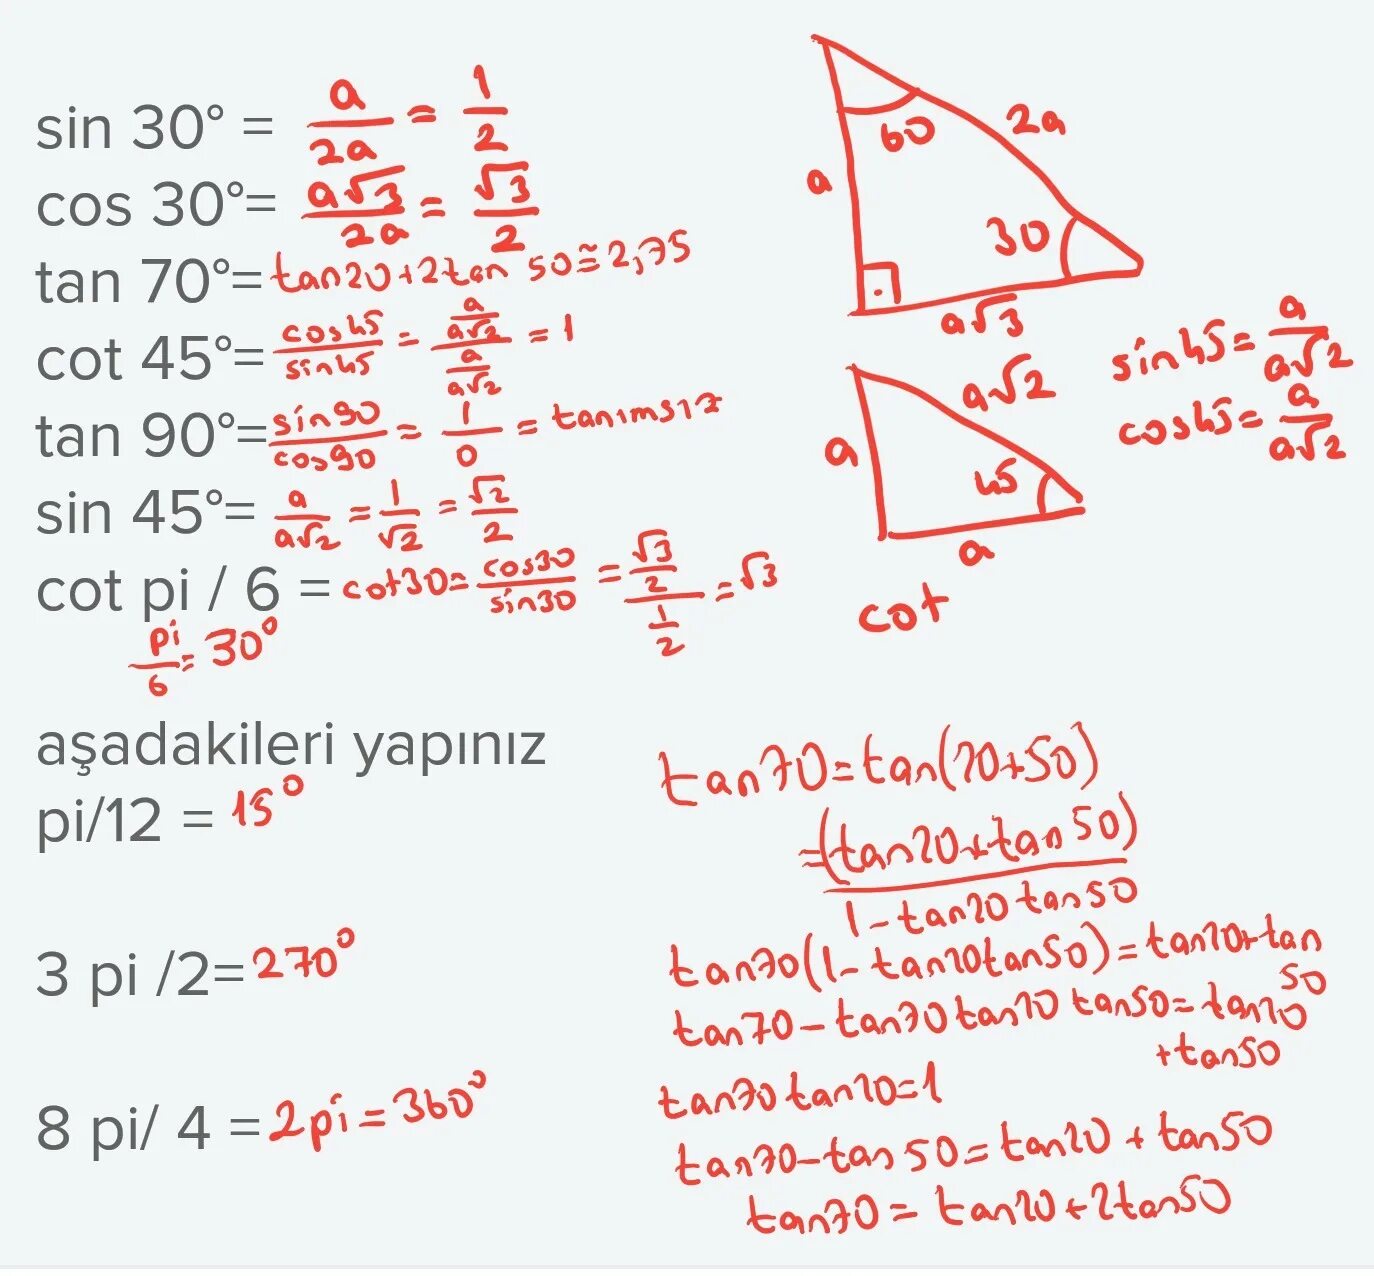 sin 30° = a/2a = 1/2
cos 30°= a√3/2a = √3/2
tan 70°= tan20+2tan 50≅2,75
cot 45°= cos45/sin45 = (a/a√2)/(a/a√2) = 1
tan 90°= sin90/cos90 = 1/0 = tanımsız
sin 45°= a/a√2 = 1/√2 = √2/2
cot pi / 6 = cot30= cos30/sin30 = (√3/2)/(1/2) = √3
pi/6 = 30°
aşadakileri yapınız
pi/12 = 15°
3 pi /2= 270°
8 pi/ 4 = 2pi = 360°
60
2a
a
30
a√3
a√2
a
45
a
sin45= a/a√2
cos45= a/a√2
cot
tan70=tan(20+50)
=(tan20+tan 50)/1-tan20tan50
tan70(1-tan20tan50)=tan20+tan 50
tan70-tan70tan20 tan50=tan20°
+tan50
tan70tan20=1
tan70-tan 50=tan20+tan50
tan70 = tan20+2tan50